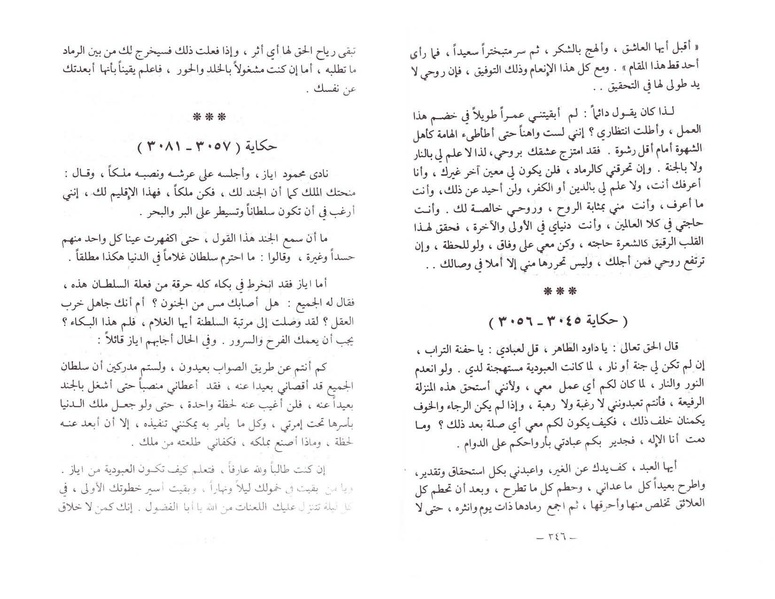 « أقبل أيها العاشق ، والهج بالشكر ، ثم سر متبختراً سعيداً ، فما رأى
أحد قط هذا المقام » . ومع كل هذا الإنعام وذلك التوفيق ، فإن روحي لا
يد طولى لها في التحقيق . .
لذا كان يقول دائماً : لم أبقيتني عمراً طويلاً في خضم هذا
العمل ، وأطلت انتظاري ؟ إنني لست واهناً حتى أطأطىء الهامة كأهل
الشهوة أمام أقل رشوة . فقد امتزج عشقك بروحي ، لذا لا علم لي بالنار
ولا بالجنة . وإن تحرقني كالرماد ، فلن يكون لي معين آخر غيرك ، وأنا
أعرفك أنت ، ولا علم لي بالدين أو الكفر ، ولن أحيد عن ذلك ، وأنت
ما أعرف ، وأنت مني بمثابة الروح ، وروحي خالصة لك . وأنت
حاجتي في كلا العالمين ، وأنت دنياي في الأولى والآخرة ، فحقق لهذا
القلب الرقيق كالشعرة حاجته ، وكن معي على وفاق ، ولو للحظة ، وإن
ترتفع روحي فمن أجلك ، وليس تحررها مني إلا أملا في وصالك . .
***
( حكاية ٣٠٤٥ - ٣٠٥٦ )
قال الحق تعالى : يا داود الطاهر ، قل لعبادي : يا حفنة التراب ،
إن لم تكن لي جنة أو نار ، لما كانت العبودية مستهجنة لدي . ولو انعدم
النور والنار ، لما كان لكم أي عمل معي ، ولأنني أستحق هذه المنزلة
الرفيعة ، فأنتم تعبدونني لا رغبة ولا رهبة ، وإذا لم يكن الرجاء والخوف
يكمنان خلف ذلك ، فكيف يكون لكم معي أي صلة بعد ذلك ؟ وما
دمت أنا الإله ، فجدير بكم عبادتي بأرواحكم على الدوام .
أيها العبد ، كف يدك عن الغير ، واعبدني بكل استحقاق وتقدير ،
واطرح بعيداً كل ما عداني ، وحطم كل ما تطرح ، وبعد أن تحطم كل
العلائق تخلص منها وأحرقها ، ثم اجمع رمادها ذات يوم وانثره ، حتى لا
— ٣٤٦ —
تبقى رياح الحق لها أي أثر ، وإذا فعلت ذلك فسيخرج لك من بين الرماد
ما تطلبه ، أما إن كنت مشغولاً بالخلد والحور ، فاعلم يقيناً بأنها أبعدتك
عن نفسك .
***
حكاية ( ٣٠٥٧ - ٣٠٨١ )
نادى محمود اياز ، وأجلسه على عرشه ونصبه ملكاً ، وقال :
منحتك الملك كما أن الجند لك ، فكن ملكاً ، فهذا الإقليم لك ، إنني
أرغب في أن تكون سلطاناً وتسيطر على البر والبحر .
ما أن سمع الجند هذا القول ، حتى اكفهرت عينا كل واحد منهم
حسداً وغيرة ، وقالوا : ما احترم سلطان غلاماً في الدنيا هكذا مطلقاً .
أما اياز فقد انخرط في بكاء كله حرقة من فعلة السلطان هذه ،
فقال له الجميع : هل أصابك مس من الجنون ؟ أم أنك جاهل خرب
العقل ؟ لقد وصلت إلى مرتبة السلطنة أيها الغلام ، فلم هذا البكاء ؟
يجب أن يعمك الفرح والسرور . وفي الحال أجابهم اياز قائلاً :
كم أنتم عن طريق الصواب بعيدون ، ولستم مدركين أن سلطان
الجميع قد أقصاني بعيدا عنه ، فقد أعطاني منصباً حتى أشغل بالجند
بعيداً عنه ، فلن أغيب عنه لحظة واحدة ، حتى ولو جعل ملك الدنيا
بأسرها تحت إمرتي ، وكل ما يأمر به يمكنني تنفيذه ، إلا أن أبعد عنه
لحظة ، وماذا أصنع بملكه ، فكفاني طلعته من ملك .
إن كنت طالباً ولله عارفاً ، فتعلم كيف تكون العبودية من اياز .
ويا من بقيت في خمولك ليلاً ونهاراً ، وبقيت أسير خطوتك الأولى ، في
كل ليلة تتنزل عليك اللعنات من الله يا أبا الفضول . إنك كمن لا خلاق